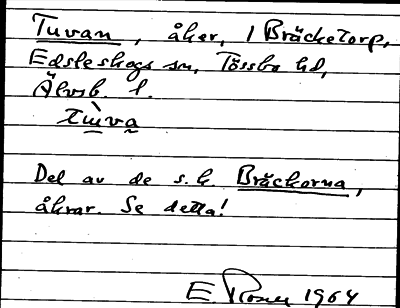 Tuvan, åker, 1 Bräcketorp,
Edsleskogs sn, Tössbo hd,
Älvsb. l.
Del av de s.k. Bräckorna,
åkrar. Se detta!
E. Rosén 1964